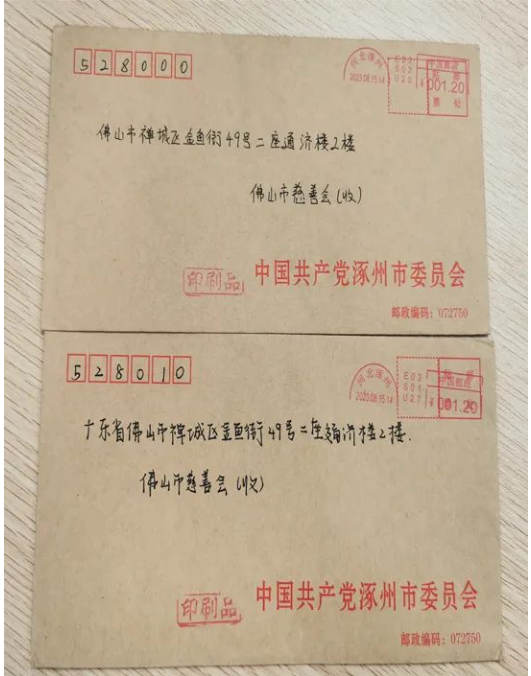 528000
河北涿州
2023.08.15.14
中国邮政
001.20
佛山市禅城区金鱼街49号二座通济楼2楼
佛山市慈善会(收)
印刷品
中国共产党涿州市委员会
邮政编码：072750
528010
河北涿州
2023.08.15.14
中国邮政
001.20
广东省佛山市禅城区金鱼街49号二座通济楼2楼.
佛山市慈善会(收)
印刷品
中国共产党涿州市委员会
邮政编码：072750